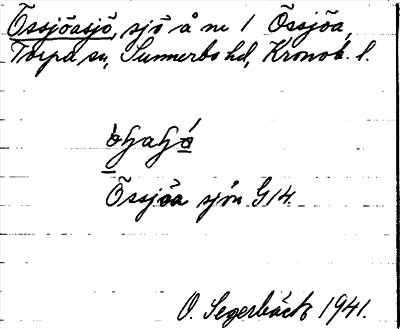 Össjöasjö, sjö å nr 1 Össjöa,
Torpa sn, Sunnerbo hd, Kronob. l.
Össjöa sjön G 14.
O. Segerbäck 1941.